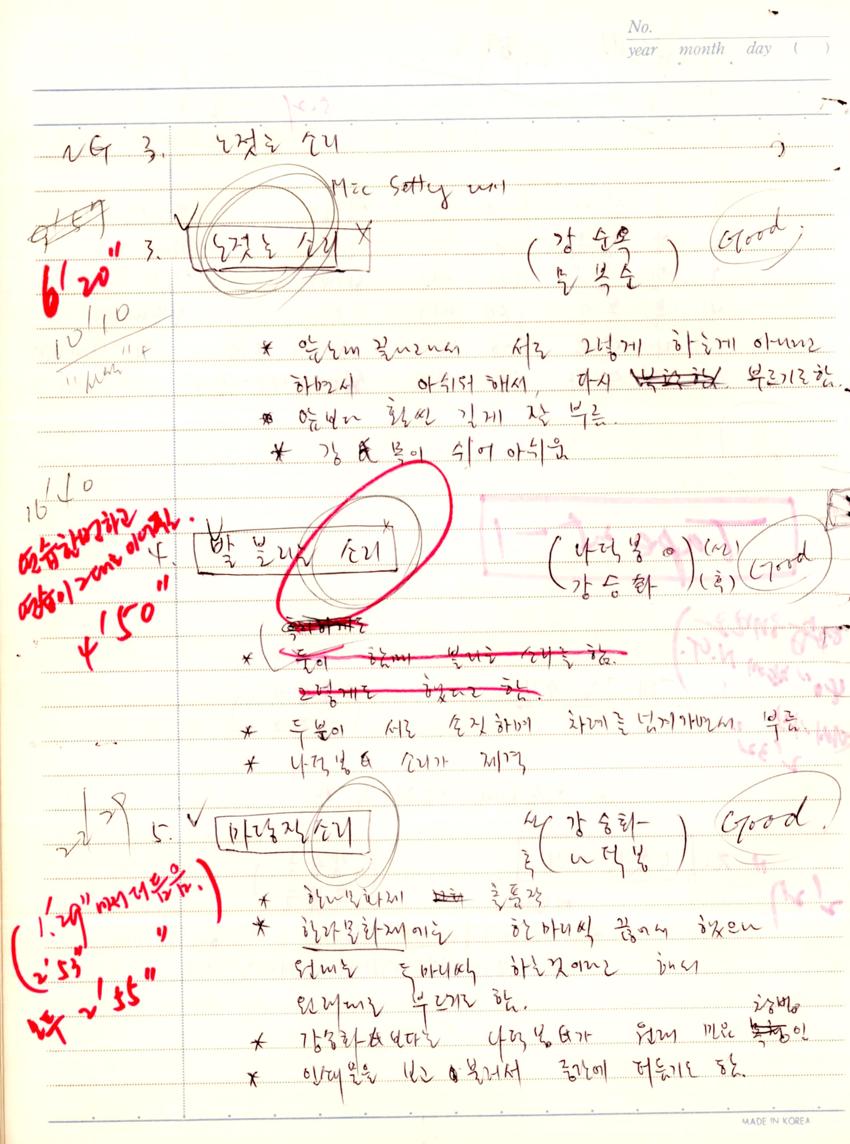 No.
year month day ( )
NG 3. 노젓는 소리
Mic Setting
9'57
6'20"
3. 노젓는 소리
( 강순옥
문복순 )
Good
10'10
* 서로 그렇게 하는게 아니라고
하면서 아쉬워해서, 다시 부르기로함.
* 앞보다 훨씬 길게 잘 부름.
* 강 목이 쉬어 아쉬움
16'10
연습한번하고
4'50"
4. 밭 볼리는 소리
( 나덕봉 (선)
강승화 ) (훅)
Good
* 둘이 함께 볼리는 소리를 함.
그렇게도 했다고 함.
* 두분이 서로 손짓하며 차례를 넘겨가면서 부름
* 나덕봉 소리가 제격
22'29
5. 마당질소리
선 ( 강승화
훅 나덕봉 )
Good.
( 1'29" 에서 더듬음.
2'53" " )
모두 2'55"
* 한라문화제 출품작
* 한라문화재에는 한마디씩 끊어서 했으나
원래는 두마디씩 하는것이라고 해서
원래대로 부르기로 함.
* 강승화 보다는 나덕봉 가 원래 창법인
* 보고 불러서 중간에 더듬기도 함.
MADE IN KOREA